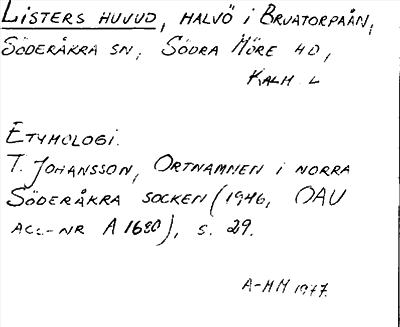 LISTERS HUVUD, HALVÖ i BRUATORPAÅN,
SÖDERÅKRA SN, SÖDRA MÖRE HD,
KALM. L
ETYMOLOGI.
T. JOHANSSON, ORTNAMNEN i NORRA
SÖDERÅKRA SOCKEN (1946, OAU
ACC-NR A 1680), s. 29.
A-MH 1977.